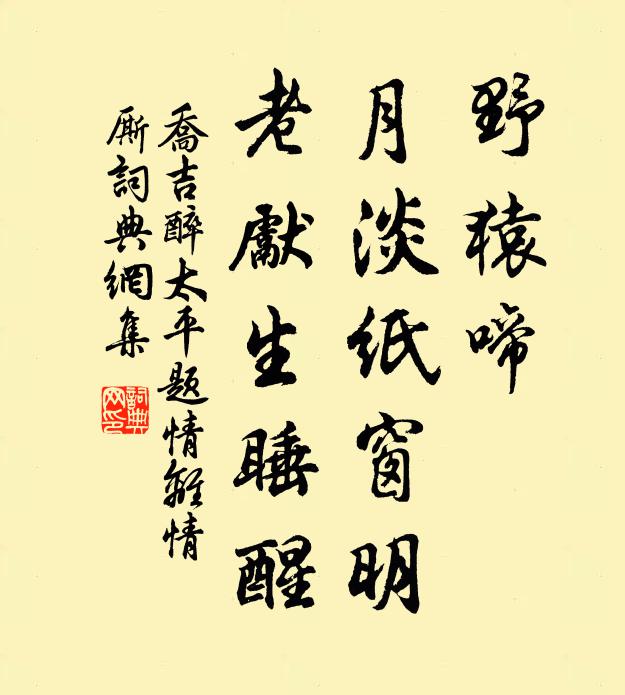 野猿啼
月淡紙窗明
老獻生睡醒
喬吉醉太平題情離情
厮詞典網集
詞典
网印